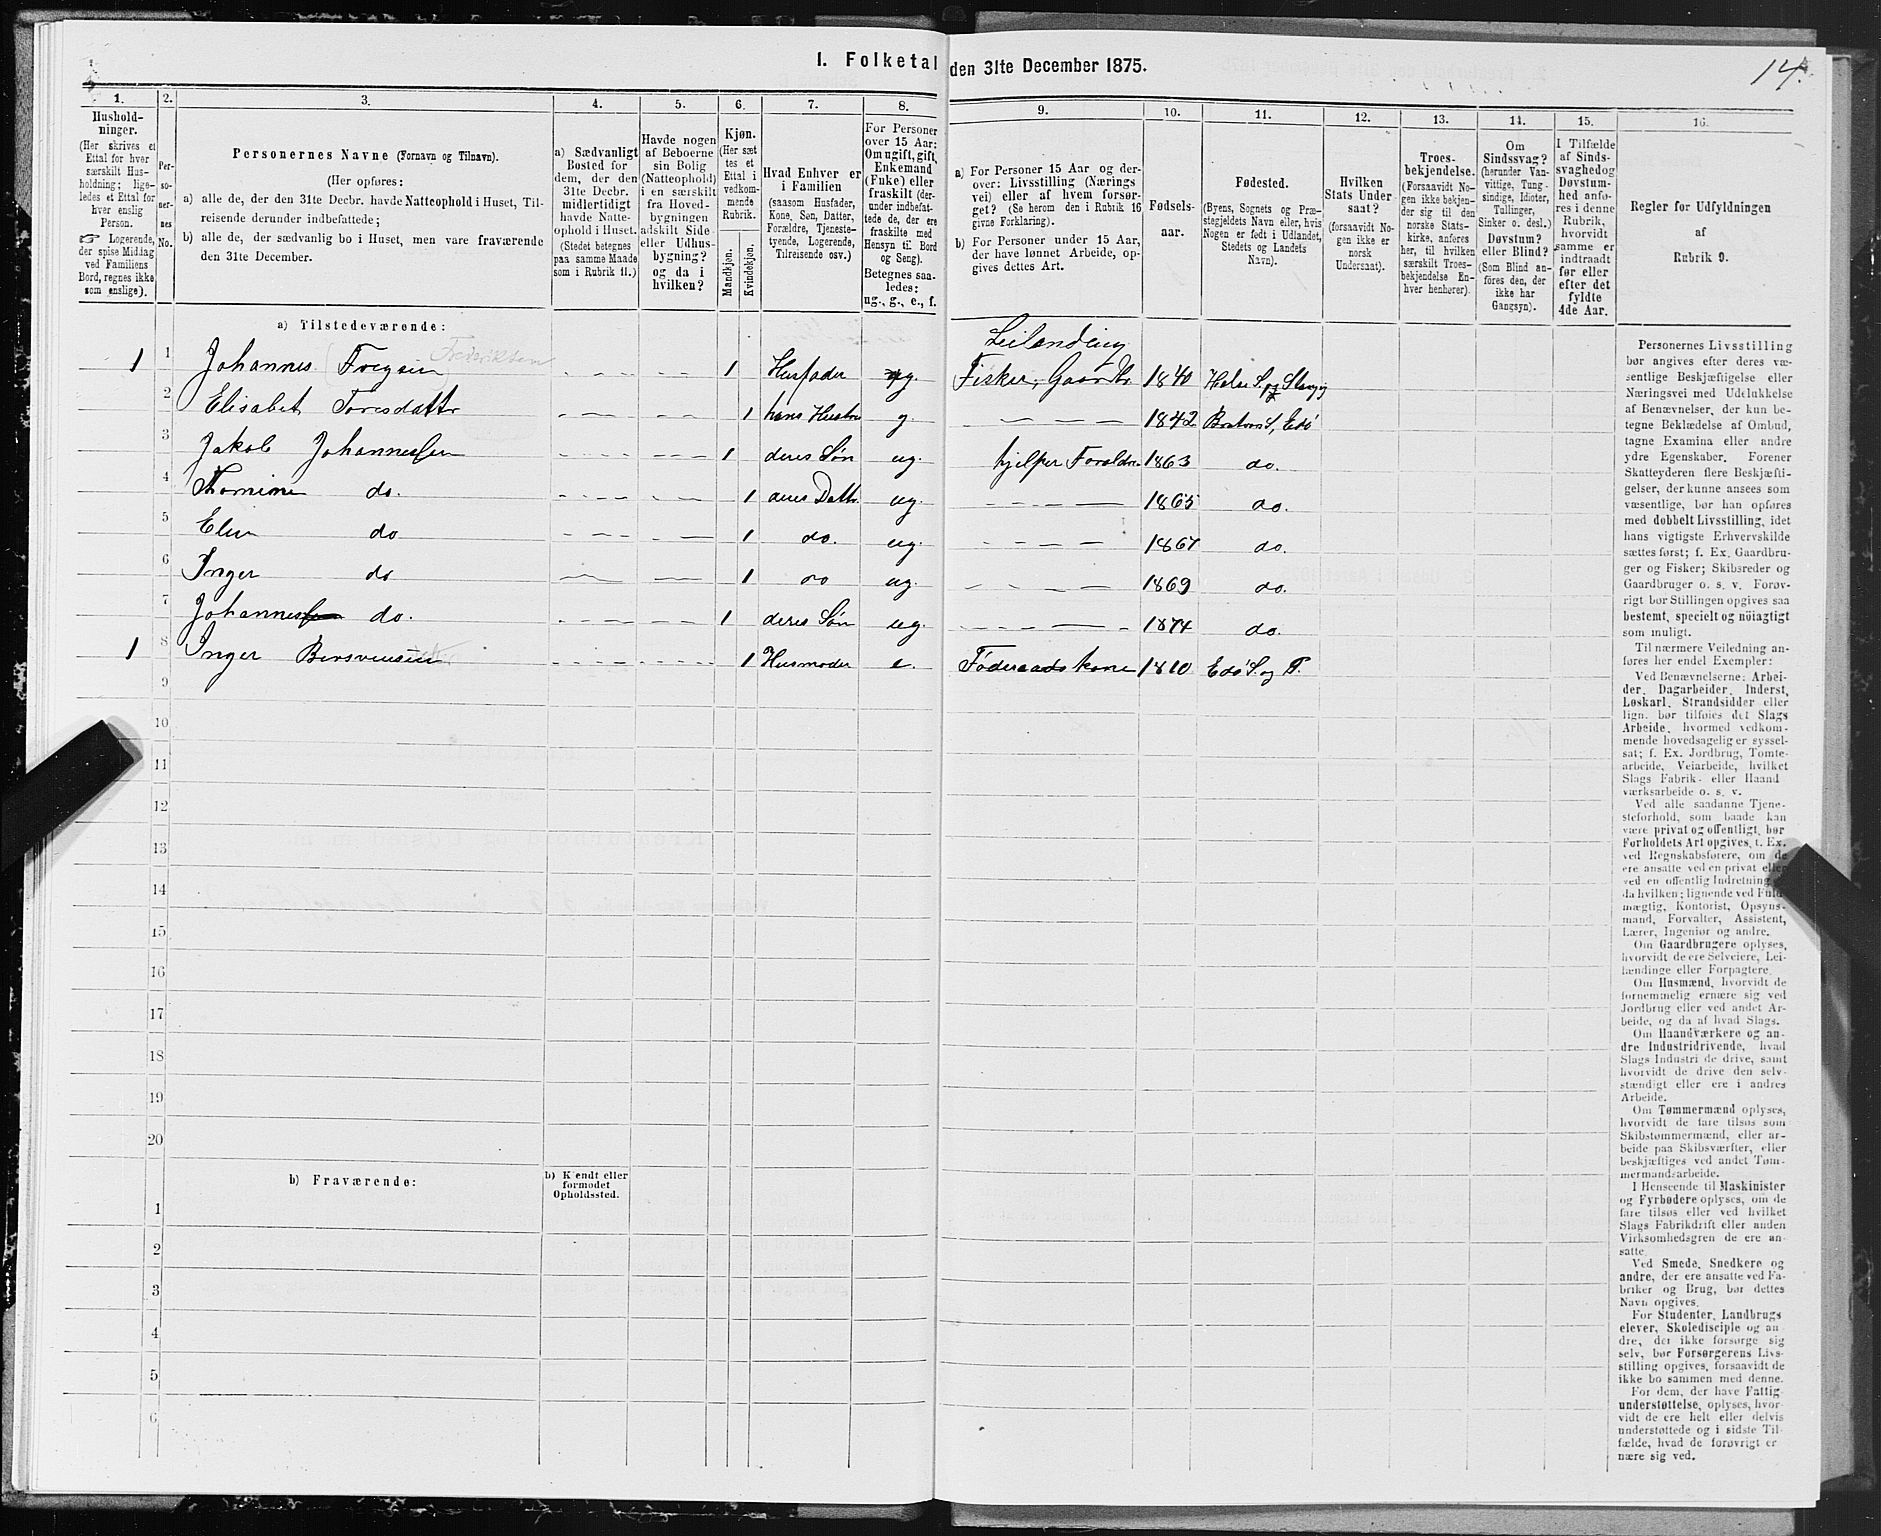 I. Folketal den 31te December 1875.
14.
1.
Hushold-
ninger.
(Her skrives et
Ettal for hver
særskilt Hus-
holdning; lige-
ledes et Ettal for
hver enslig
Person.
☞ Logerende,
der spise Middag
ved Familiens
Bord, regnes ikke
som enslige).
2.
Per-
so-
ner-
nes
No.
3.
Personernes Navne (Fornavn og Tilnavn).
(Her opføres:
a) alle de, der den 31te Decbr. havde Natteophold i Huset, Til-
reisende derunder indbefattede;
b) alle de, der sædvanlig bo i Huset, men vare fraværende
den 31te December.
4.
a) Sædvanligt
Bosted for
dem, der den
31te Decbr.
midlertidigt
havde Natte-
ophold i Huset.
(Stedet betegnes
paa samme Maade
som i Rubrik 11.)
5.
Havde nogen
af Beboerne
sin Bolig
(Natteophold)
i en særskilt
fra Hoved-
bygningen
adskilt Side-
eller Udhus-
bygning?
og da i
hvilken?
6.
Kjøn.
(Her sæt
tes et
Ettal i
vedkom-
mende
Rubrik.
Mandkjøn.
Kvindekjøn.
7.
Hvad Enhver er
i Familien
(saasom Husfader,
Kone, Søn, Datter,
Forældre, Tjeneste-
tyende, Logerende,
Tilreisende osv.)
8.
For Personer
over 15 Aar:
Om ugift, gift,
Enkemand
(Fuke) eller
fraskilt (der-
under indbefat-
tede de, der ere
fraskilte med
Hensyn til Bord
og Seng).
Betegnes saa-
ledes:
ug., g., e., f.
9.
a) For Personer 15 Aar og der-
over: Livsstilling (Nærings
vei) eller af hvem forsør-
get? (Se herom den i Rubrik 16
givne Forklaring).
b) For Personer under 15 Aar,
der have lønnet Arbeide, op-
gives dettes Art.
10.
Fødsels-
aar.
11.
Fødested.
(Byens, Sognets og Præ-
stegjeldets Navn eller, hvis
Nogen er født i Udlandet,
Stedets og Landets
Navn).
12.
Hvilken
Stats Under-
saat?
(forsaavidt No-
gen ikke er
norsk
Undersaat).
13.
Troes-
bekjendelse.
(Forsaavidt No-
gen ikke bekjen-
der sig til den
norske Stats-
kirke, anføres
her, til hvilken
særskilt Troes-
bekjendelse En-
hver henhører).
14.
Om
Sindssvag?
(herunder Van-
vittige, Tung-
sindige, Idioter,
Tullinger,
Sinker o. desl.)
Døvstum?
eller Blind?
(Som Blind an-
føres den, der
ikke har
Gangsyn).
15.
I Tilfælde
af Sinds-
svaghed og
Døvstum-
hed anfø-
res i denne
Rubrik,
hvorvidt
samme er
indtraadt
før eller
efter det
fyldte
4de Aar.
16.
Regler for Udfyldningen
af
Rubrik 9.
a) Tilstedeværende:
Frederiksen
Leilending
1 1 Johannes 1 Husfader ug. Fisker, Gaardbr 1840
2 Elisabet Toresdattr 1 hans Hustru g. 1842 Edø
3 Jakob Johannessen 1 deres Søn ug. hjelper Foraldre 1863 do.
4 Thomine do. 1 deres Dattr ug. 1865 do.
5 Elen do 1 do. ug. 1867 do.
6 Inger do 1 do ug. 1869 do.
7 Johannes do. 1 deres Søn ug. 1874 do.
1 8 Inger 1 Husmoder e. Føderaadskone 1810 Edø S. og P.
9
10
11
12
13
14
15
16
17
18
19
20
b) Fraværende:
b) Kjendt eller
formodet
Opholdssted.
1
2
3
4
5
6
Personernes Livsstilling
bør angives efter deres væ-
sentlige Beskjæftigelse eller
Næringsvei med Udelukkelse
af Benævnelser, der kun be-
tegne Beklædelse af Ombud,
tagne Examina eller andre
ydre Egenskaber. Forener
Skatteyderen flere Beskjæfti-
gelser, der kunne ansees som
væsentlige, bør han opføres
med dobbelt Livsstilling, idet
hans vigtigste Erhvervskilde
sættes først; f. Ex. Gaardbru-
ger og Fisker; Skibsreder og
Gaardbruger o. s. v. Forøv-
rigt bør Stillingen opgives saa
bestemt, specielt og nøiagtigt
som muligt.
Til nærmere Veiledning an-
føres her endel Exempler:
Ved Benævnelserne: Arbei-
der, Dagarbeider, Inderst,
Løskarl, Strandsidder eller
lign. bør tilføies det Slags
Arbeide, hvormed vedkom-
mende hovedsagelig er syssel-
sat; f. Ex. Jordbrug, Tomte-
arbeide, Veiarbeide, hvilket
Slags Fabrik- eller Haand
værksarbeide o. s. v.
Ved alle saadanne Tjene-
steforhold, som baade kan
være privat og offentligt, bør
Forholdets Art opgives, t. Ex.
ved Regnskabsførere, om de
ere ansatte ved en privat eller
ved en offentlig Indretning og
da hvilken; lignende ved Fuld-
mægtig, Kontorist, Opsyns-
mand, Forvalter, Assistent,
Lærer, Ingeniør og andre.
Om Gaardbrugere oplyses,
hvorvidt de ere Selveiere, Lei-
lændinge eller Forpagtere.
Om Husmænd, hvorvidt de
fornemmelig ernære sig ved
Jordbrug eller ved andet Ar-
beide, og da af hvad Slags.
Om Haandværkere og an-
dre Industridrivende, hvad
Slags Industri de drive, samt
hvorvidt de drive den selv-
stændigt eller ere i andres
Arbeide.
Om Tømmermænd oplyses,
hvorvidt de fare tilsøs som
Skibstømmermænd, eller ar-
beide paa Skibsværfter, eller
beskjæftiges ved andet Tøm-
mermandsarbeide.
I Henseende til Maskinister
og Fyrbødere oplyses, om de
fare tilsøs eller ved hvilket
Slags Fabrikdrift eller anden
Virksomhedsgren de ere an-
satte.
Ved Smede, Snedkere og
andre, der ere ansatte ved Fa-
briker og Brug, bør dettes
Navn opgives.
For Studenter, Landbrugs
elever, Skoledisciple og an-
dre, der ikke forsørge sig
selv, bør Forsørgerens Livs-
stilling opgives, forsaavidt de
ikke bo sammen med denne.
For dem, der have Fattig-
understøttelse, oplyses, hvor-
vidt de ere helt eller delvis
understøttede og i sidste Til-
fælde, hvad de forøvrigt er
nære sig ved.